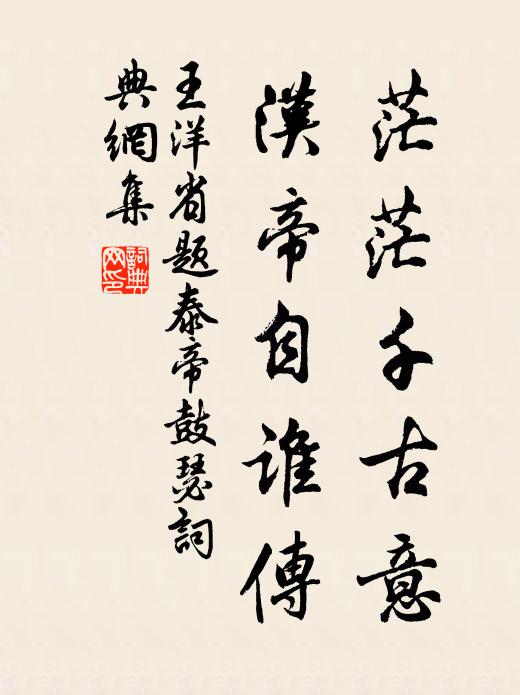 茫茫千古意
漢帝自誰傳
王洋省題泰帝鼓瑟詞
典網集
詞典
網印